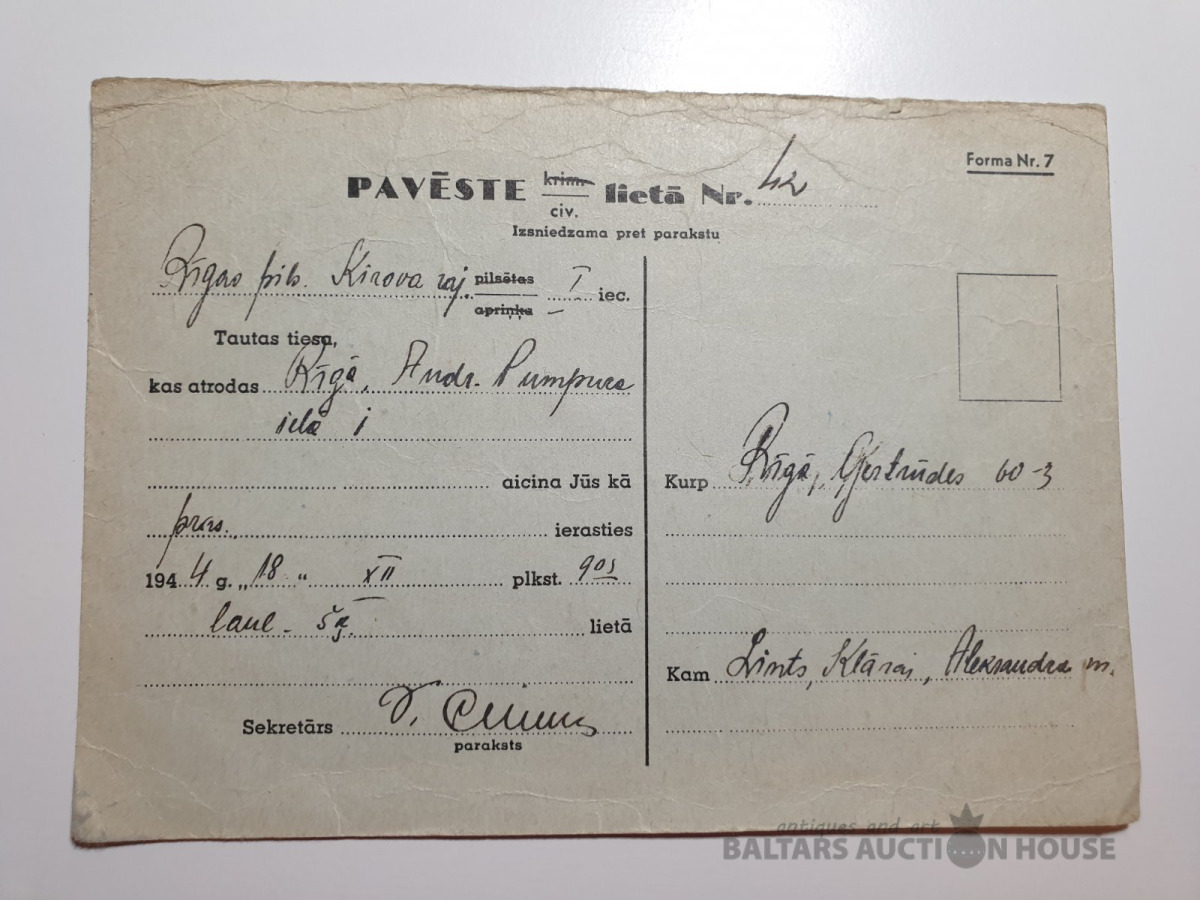 Forma Nr. 7
PAVĒSTE krim. civ. lietā Nr. 42
Izsniedzama pret parakstu
Rīgas pils. Kirova raj. pilsētas apriņķa I iec.
Tautas tiesa,
kas atrodas Rīgā, Andr. Pumpura
ielā 1
aicina Jūs kā
pras. ierasties
1944 g. „18“ XII plkst. 9 05
laul. šķ. lietā
Sekretārs
paraksts
Kurp Rīgā, Ģertrūdes 60-3
Kam Lints, Klārai, Aleksandra m.
antiques and art
BALTARS AUCTION HOUSE